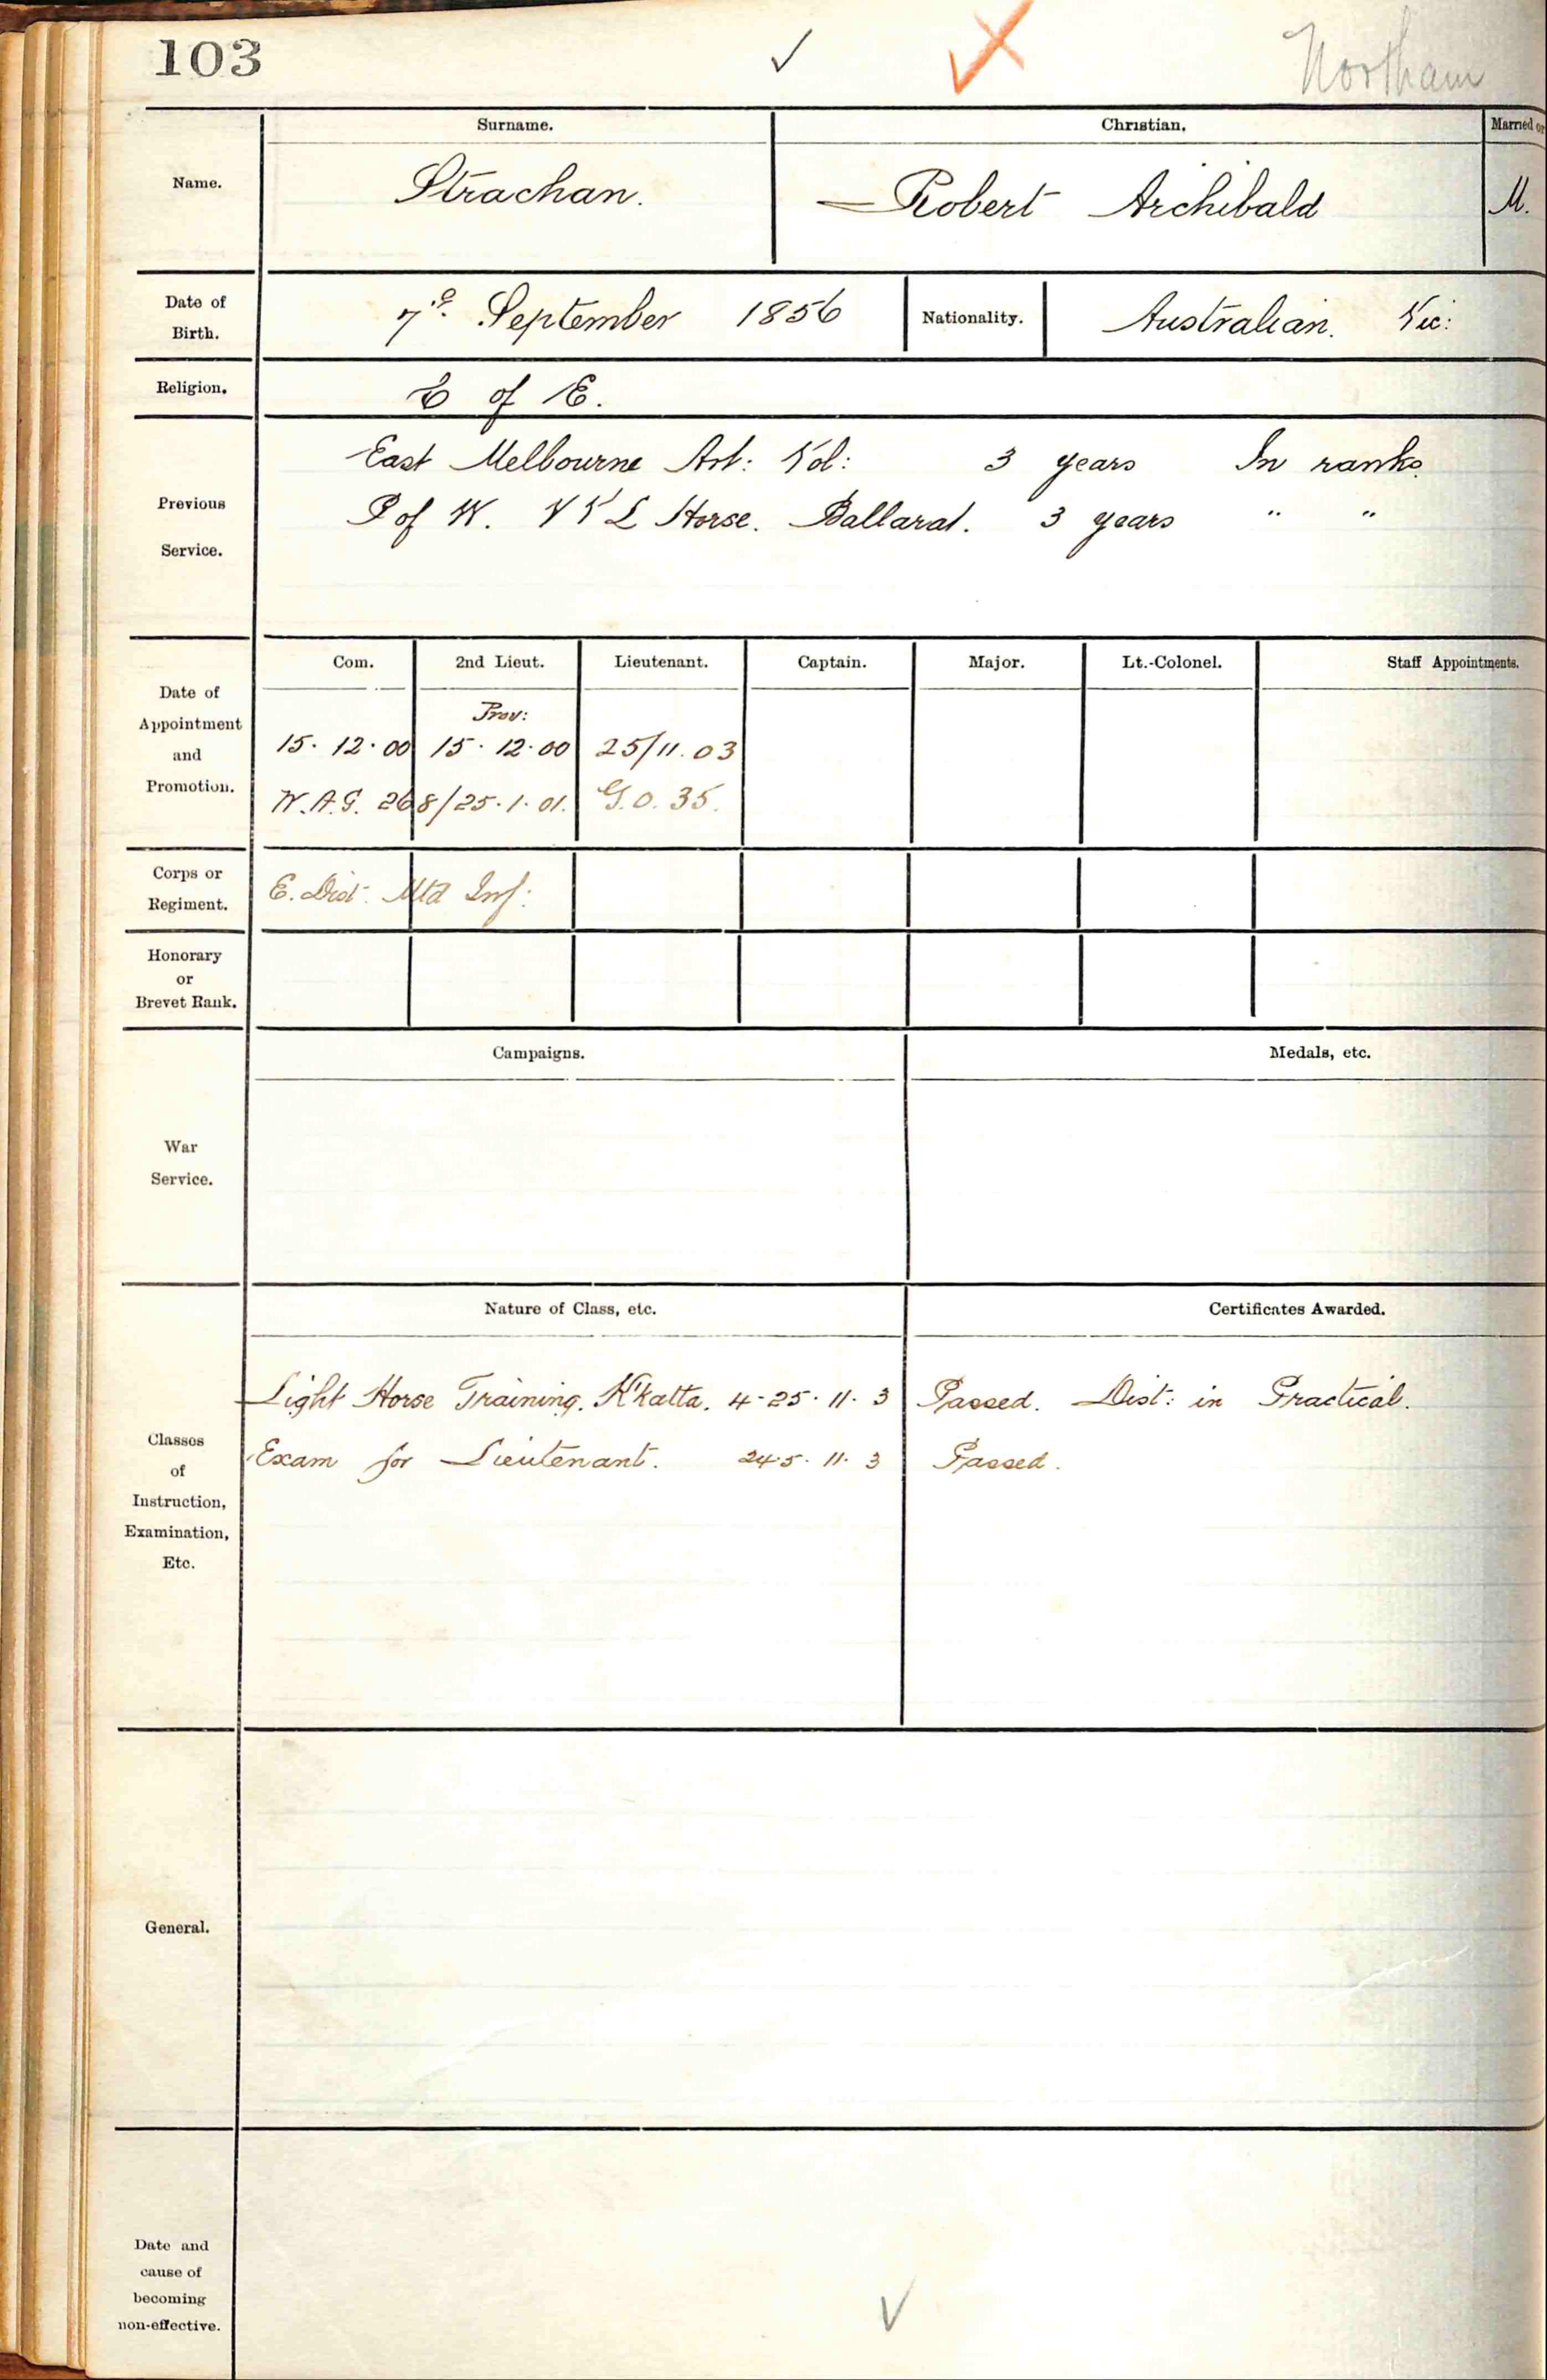 103 Northam
Surname. Christian. Married or
Name. Strachan. Robert Archibald M.
Date of Birth. 7th September 1856 Nationality. Australian. Vic:
Religion. C of E.
East Melbourne Art: Vol: 3 years In ranks.
Previous Service.
P of W. V V L Horse. Ballarat. 3 years " "
Com. 2nd Lieut. Lieutenant. Captain. Major. Lt.-Colonel. Staff Appointments.
Date of Appointment and Promotion.
Prov:
15. 12. 00 15. 12. 00 25/11. 03
W.A.G. 268/25. 1. 01. G.O. 35.
Corps or Regiment. E. Dist. Mtd Inf:
Honorary or Brevet Rank.
Campaigns. Medals, etc.
War Service.
Nature of Class, etc. Certificates Awarded.
Light Horse Training. K'katta. 4-25. 11. 3 Passed. Dist: in Practical.
Exam for Lieutenant. 24.5. 11. 3 Passed.
Classes of Instruction, Examination, Etc.
General.
Date and cause of becoming non-effective.